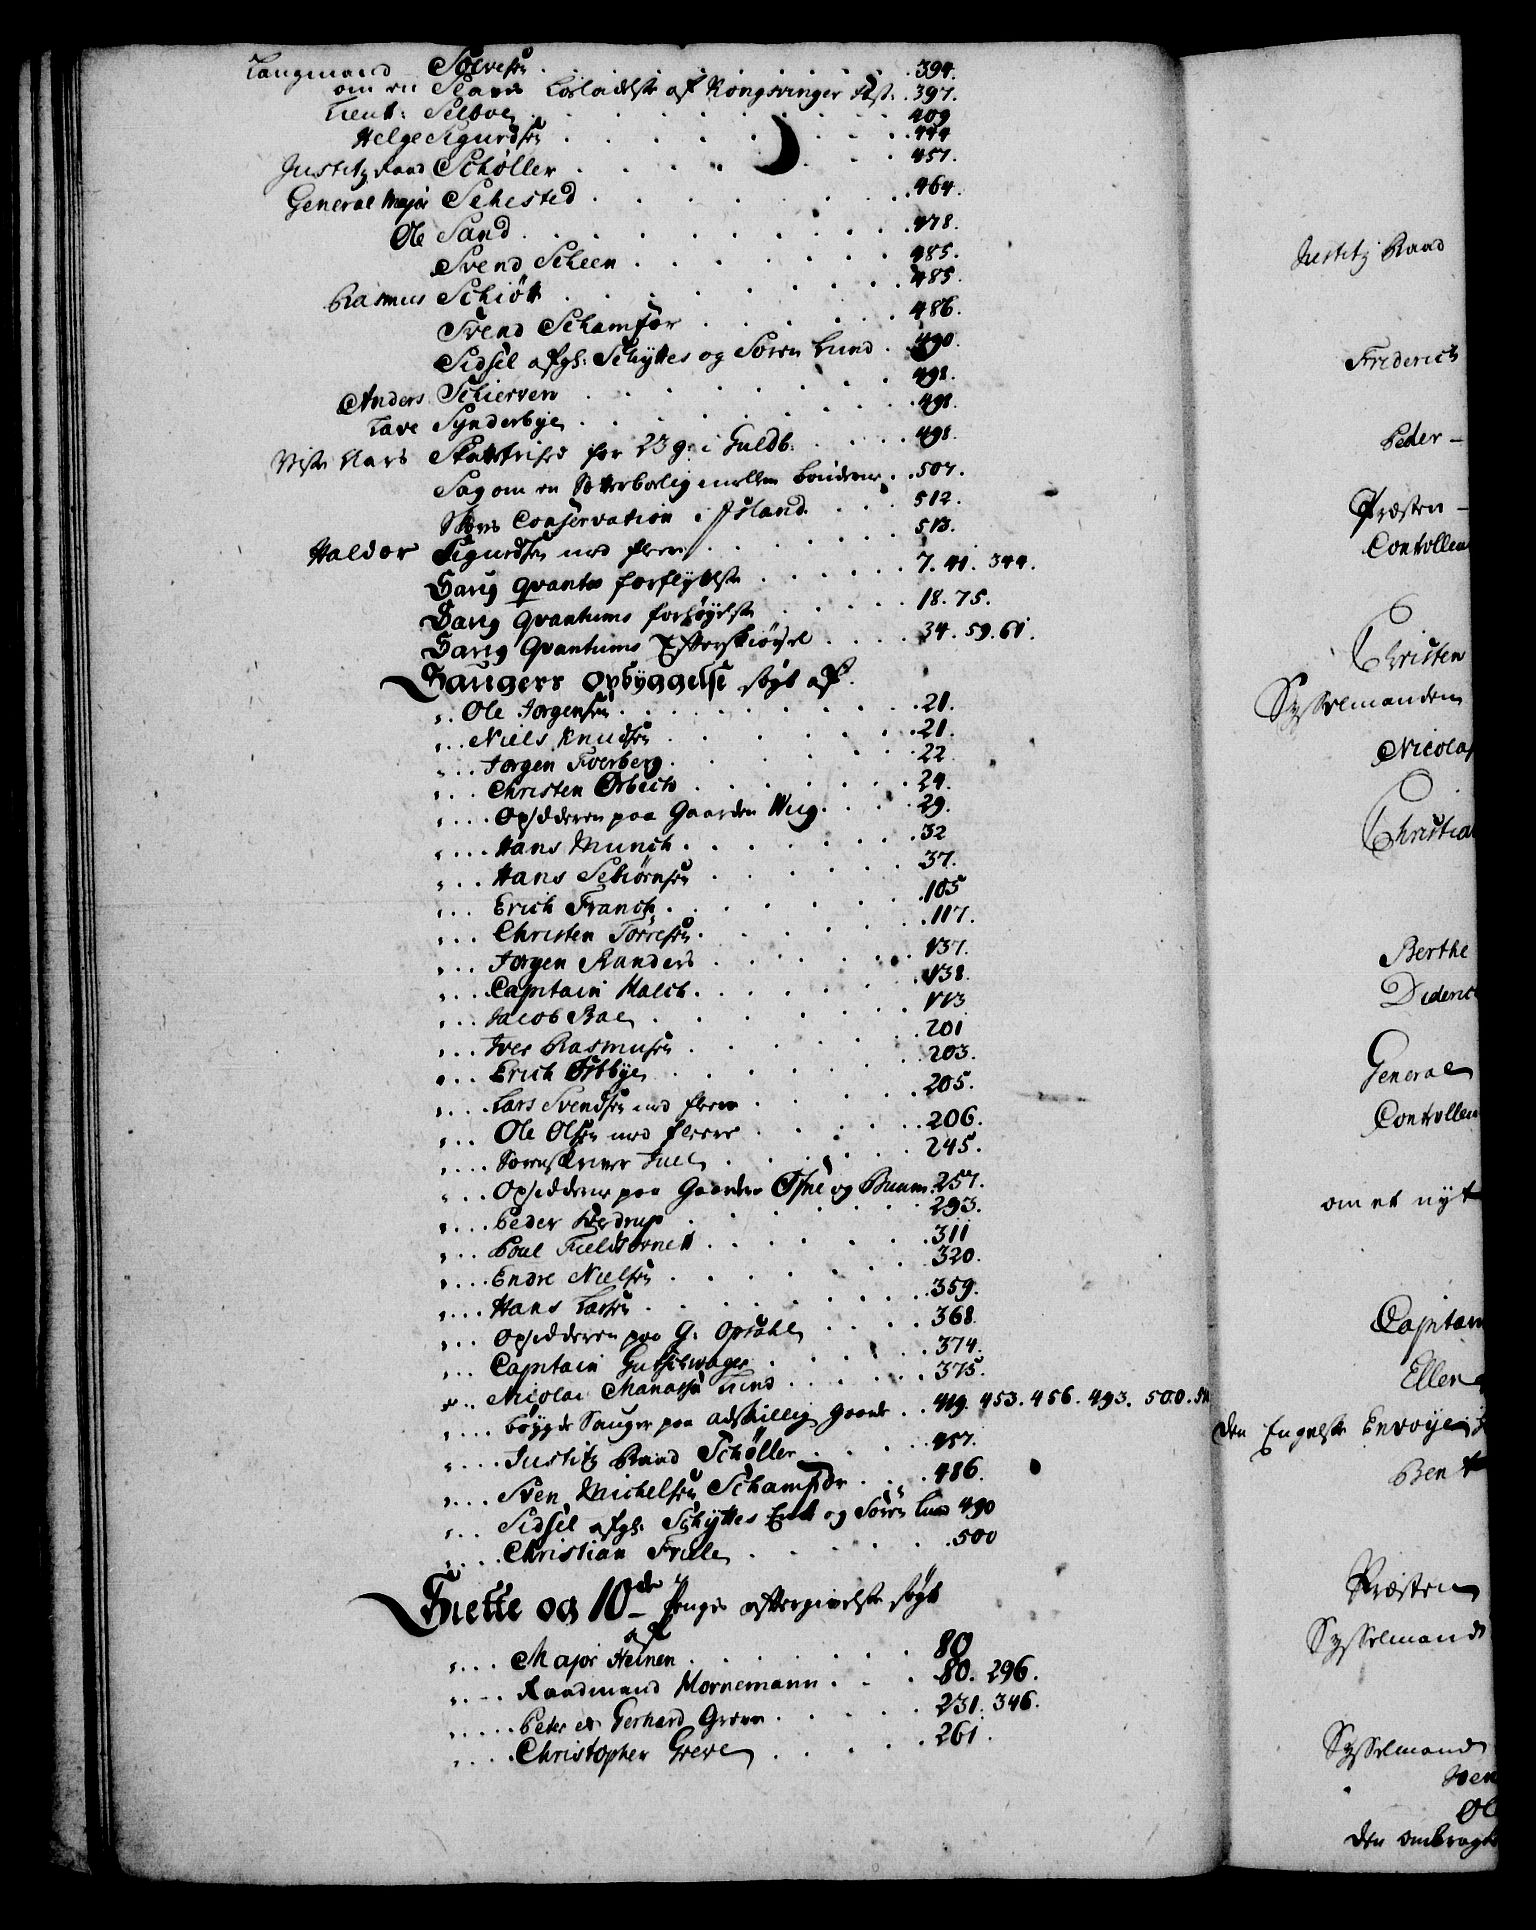 Laugmand Sølvesen . . . 394.
om en Slaves Løsladelse af Kongsvinger Fæst: . 397.
Lieut: Selboe . . . 409
Helge Sigurdsen . . . 444
Justitz Raad Schøller . . . 457.
General Major Sehested . . . 464.
Ole Sand . . . 478.
Svend Scheen . . . 485.
Rasmus Schiøtt . . . 485.
Svend Schamfær . . . 486.
Sidsel afgl: Schyttes og Søren Lund . 490.
Anders Schierven . . . 498.
Tave Synderbye . . . 498.
Skattefrihed for 23 g: i Guldb: . . . 498.
Sag om en Sætterbolig mellem bønderne . . 507.
Conservation i Island . . . 512.
Haldor Sigurdsen med fleere . . . 513.
Saug Qvanta forflyttelse . . . 7. 41. 344.
Saug Qvantums forhøyelse . . . 18. 75.
Saug Qvantums Efterskiøsel . . . 34. 59. 61.
Saugers Opbyggelse søgt af.
Ole Jørgensen . . . 21.
Niels Knudsen . . . 21.
Jørgen Foerberg . . . 22.
Christen Orbech . . . 24.
Opsidderen paa Gaarden Wiig . . . 29.
Hans Munch . . . 32
Hans Sebiørnsen . . . 37.
Erich Franch . . . 105
Christen Torresen . . . 117.
Jørgen Randers . . . 137.
Capitain Kalch . . . 138.
Jacob Bae . . . 113
Iver Rasmusen . . . 201
Erich Østbye . . . 203.
Lars Svendsen med fleere . . . 205.
Ole Olsen med fleere . . . 206.
Sorenskriver Juel . . . 245.
Opsidderne paa Gaarden Ofne og Buum . 257.
Peder Werdrup . . . 293.
Poul Fieldstørnet . . . 311
Endre Nielsen . . . 320.
Hans Larsen . . . 359.
Opsidderen paa G: Opsahl . . . 368.
Capitain Gutschwager . . . 374.
Nicolai Manassa Lund . . . 375.
bøygde Sauger paa adskillig gaarde . . 419. 453. 456. 493. 500.
Justitz Raad Schøller . . . 457.
Sven Michelsen Schamfær . . . 486.
Sidsel afgl: Schyttes Enk og Søren Lund 490
Christian Friele . . . 500
Siette og 10de Penges eftergivelse søgt
af
Major Heinen . . . 80
Raadmand Hornemann . . . 80. 296.
Peter og Gerhard Greve . . . 231. 346.
Christopher Greve . . . 261.
Justitz Raad
Friderich
Peder -
Præsten -
Controlleur
Christen
Sysselmanden
Nicolai
Christian
Berthe
Diderich
General
Controlleur
om et nyt
Capitain
Ellen
den Engelske Envoye
Bent
Præsten
Sysselmand
Sysselmand
den ombragte